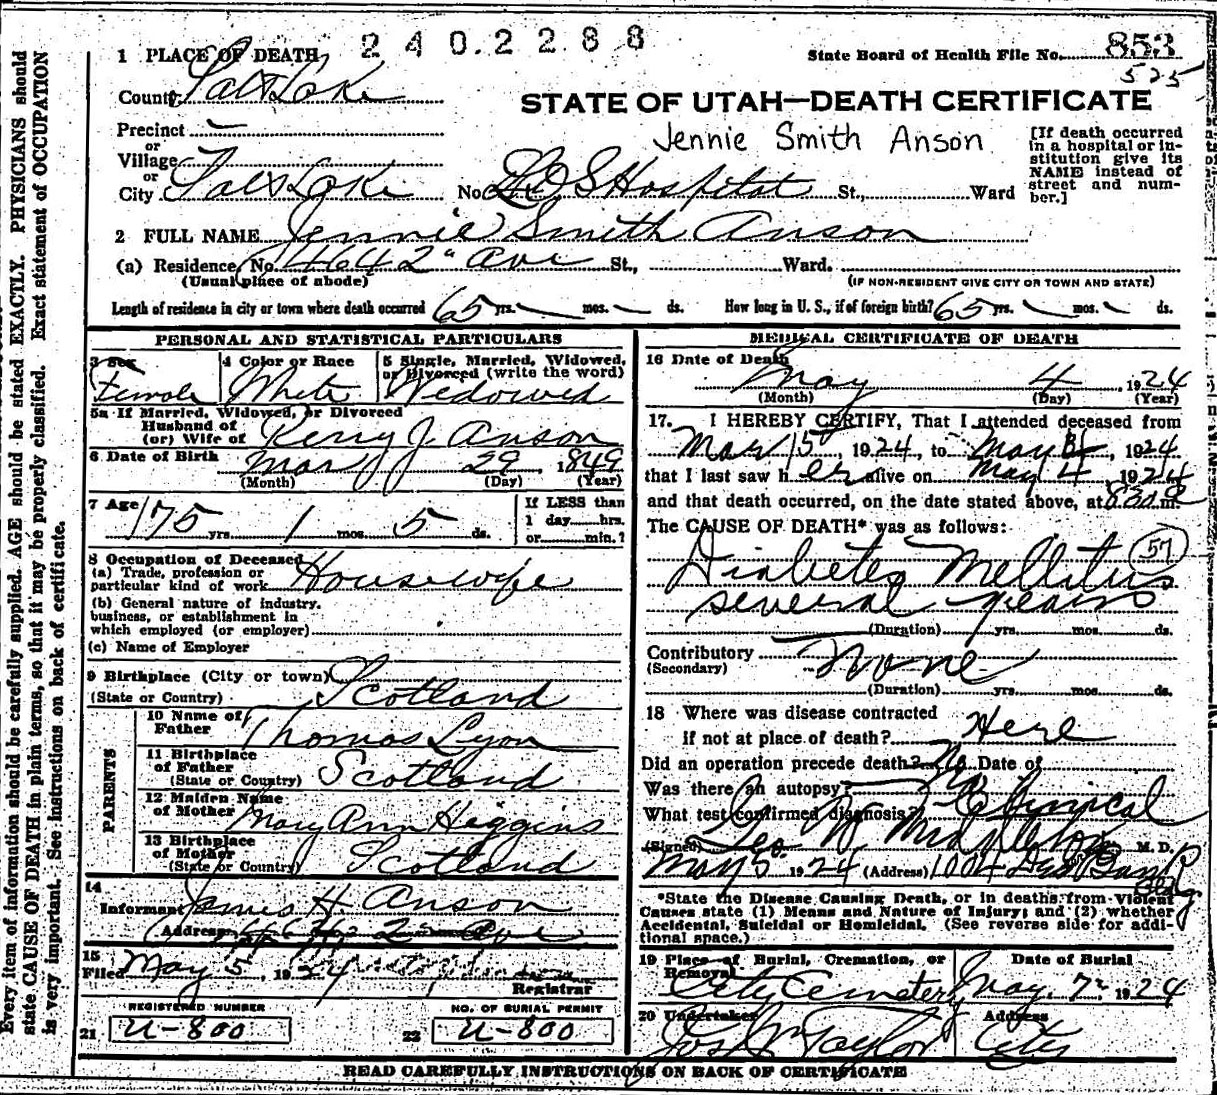 240.2288
State Board of Health File No. 853
525
STATE OF UTAH—DEATH CERTIFICATE
Jennie Smith Anson
1 PLACE OF DEATH
County Salt Lake
Precinct —
or
Village
or
City Salt Lake No. L.D.S Hospital St., Ward
[If death occurred in a hospital or institution give its NAME instead of street and number.]
2 FULL NAME Jennie Smith Anson
(a) Residence, No. 464 2" Ave St., Ward.
(Usual place of abode) (IF NON-RESIDENT GIVE CITY OR TOWN AND STATE)
Length of residence in city or town where death occurred 65 yrs. — mos. — ds. How long in U. S., if of foreign birth? 65 yrs. — mos. — ds.
PERSONAL AND STATISTICAL PARTICULARS
3 Sex Female
4 Color or Race White
5 Single, Married, Widowed, or Divorced (write the word) Widowed
5a If Married, Widowed, or Divorced
Husband of
(or) Wife of J. Anson
6 Date of Birth 29 1849
(Month) (Day) (Year)
7 Age 75 yrs. 1 mos. 5 ds.
If LESS than
1 day hrs.
or min.?
8 Occupation of Deceased
(a) Trade, profession or
particular kind of work Housewife
(b) General nature of industry,
business, or establishment in
which employed (or employer)
(c) Name of Employer
9 Birthplace (City or town)
(State or Country) Scotland
PARENTS
10 Name of Father Thomas Lyon
11 Birthplace of Father (State or Country) Scotland
12 Maiden Name of Mother Mary Ann Higgins
13 Birthplace of Mother (State or Country) Scotland
14
Informant James H. Anson
Address 2 Ave
15
Filed May 5 1924
Registrar
REGISTERED NUMBER
21 U-800
NO. OF BURIAL PERMIT
22 U-800
MEDICAL CERTIFICATE OF DEATH
16 Date of Death May 4, 1924
(Month) (Day) (Year)
17. I HEREBY CERTIFY, That I attended deceased from
Mar 15, 1924, to May 4, 1924
that I last saw her alive on May 4, 1924
and that death occurred, on the date stated above, at 830 P. m.
The CAUSE OF DEATH* was as follows:
57
Diabetes Mellitus
several years
(Duration) yrs. mos. ds.
Contributory None
(Secondary)
(Duration) yrs. mos. ds.
18 Where was disease contracted
if not at place of death? Here
Did an operation precede death? No Date of
Was there an autopsy? No
What test confirmed diagnosis? Clinical
(Signed) Geo W Middleton M. D.
May 5 1924 (Address) 1004 Des Bank Bldg
*State the Disease Causing Death, or in deaths from Violent
Causes state (1) Means and Nature of Injury; and (2) whether
Accidental, Suicidal or Homicidal. (See reverse side for additional space.)
19 Place of Burial, Cremation, or Removal City Cemetery
Date of Burial May 7 1924
20 Undertaker Jos Wm Taylor
Address City
READ CAREFULLY INSTRUCTIONS ON BACK OF CERTIFICATE
Every item of information should be carefully supplied. AGE should be stated EXACTLY. PHYSICIANS should
state CAUSE OF DEATH in plain terms, so that it may be properly classified. Exact statement of OCCUPATION
is very important. See instructions on back of certificate.